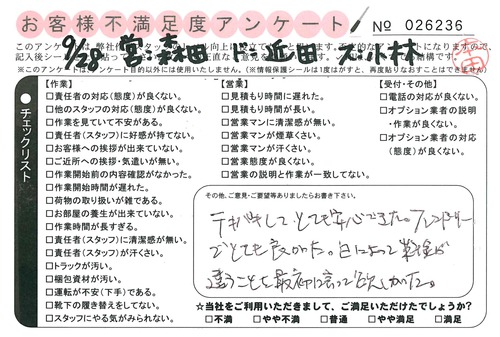 お客様不満足度アンケート
№ 026236
9/28 営 森田 ド 近田 ス 小林
※このアンケートは、アンケート目的以外には使用いたしません。(※情報保護シールは1度はがすと、再度貼りなおすことはできません)
チェックリスト
【作業】
□責任者の対応(態度)が良くない。
□他のスタッフの対応(態度)が良くない。
□作業を見ていて不安がある。
□責任者(スタッフ)に好感が持てない。
□お客様への挨拶が出来ていない。
□ご近所への挨拶・気遣いが無い。
□作業開始前の内容確認がなかった。
□作業開始時間が遅れた。
□荷物の取り扱いが雑である。
□お部屋の養生が出来ていない。
□作業時間が長すぎる。
□責任者(スタッフ)に清潔感が無い。
□責任者(スタッフ)が汗くさい。
□トラックが汚い。
□梱包資材が汚い。
□運転が不安(下手)である。
□靴下の履き替えをしてない。
□スタッフにやる気がみられない。
【営業】
□見積り時間に遅れた。
□見積り時間が長い。
□営業マンに清潔感が無い。
□営業マンが煙草くさい。
□営業マンが汗くさい。
□営業態度が良くない。
□営業の説明と作業が一致してない。
【受付・その他】
□電話の対応が良くない。
□オプション業者の説明・作業が良くない。
□オプション業者の対応(態度)が良くない。
その他、ご意見・ご要望等ありましたらお書き下さい。
とても安心できた。フレンドリー
でとても良かった。日によって料金が
違うことを最初に言って欲しかった。
☆当社をご利用いただきまして、ご満足いただけたでしょうか?
□不満 □やや不満 □普通 □やや満足 □満足